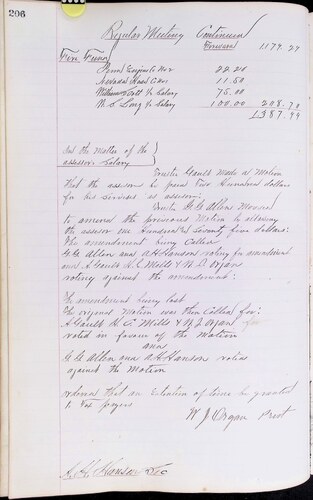 206
Regular Meeting Continued
Forward 1179.29
Fire Fund
Engine No 2 22.20
Nevada Hose Co
William Scott Salary 75.00
W C Long Salary 100.00 208.70
1387.99
In the Matter of the
assessors Salary
Trustee Gault Made a Motion
that the assessor be paid Two Hundred dollars
for his services as assessor:
Trustee G.G. Allen Moved
to amend the previous Motion by allowing
the assessor one Hundred and Seventy five dollars:
The amendment being Called
G.G. Allen and A H Hanson voting for amendment
and A Gault W.C. Mills & W. J. Organ
voting against the amendment:
The amendment being lost
The original Motion was then Called for:
A Gault W C. Mills & W J Organ
voted in favour of the Motion
and
G.G. Allen and A H Hanson voted
against the Motion
ordered that an Extention of time be granted
to Tax payers
W J Organ Prest
A.H. Hanson Sec